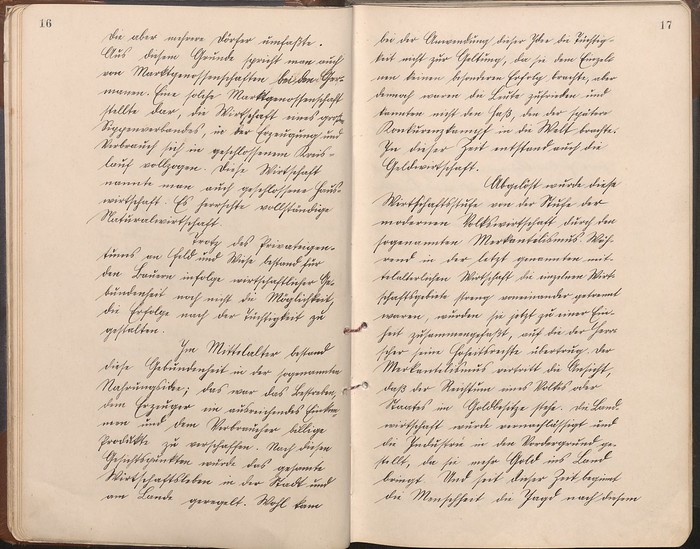 16
die aber mehrere Dörfer umfaßte.
Aus diesem Grunde spricht man auch
von Marktgenossenschaften bei den Ger-
manen. Eine solche Marktgenossenschaft
stellte dar, die Wirtschaft eines großen
Sippenverbandes, in der Erzeugung und
Verbrauch sich in geschlossenem Kreis-
lauf vollzogen. Diese Wirtschaft
nannte man auch geschlossene Haus-
wirtschaft. Es herrschte vollständige
Naturalwirtschaft
Trotz des Privateigen-
tums an Feld und Wiese bestand für
den Bauern infolge wirtschaftlicher Ge-
bundenheit noch nicht die Möglichkeit,
die Erfolge nach der Tüchtigkeit zu
gestalten.
Im Mittelalter bestand
diese Gebundenheit in der sogenannten
Nahrungsidee; das war das Bestreben,
dem Erzeuger ein ausreichendes Einkom-
men und dem Verbraucher billige
Produkte zu verschaffen. Nach diesen
Gesichtspunkten wurde das gesamte
Wirtschaftsleben in der Stadt und
am Lande geregelt. Wohl kam
17
bei der Anwendung dieser Idee die Tüchtig-
keit nicht zur Geltung, da sie dem Einzel-
nen keinen besonderen Erfolg brachte, aber
dennoch waren die Leute zufrieden und
kannten nicht den Haß, den der spätere
Konkurrenzkampf in die Welt brachte.
In dieser Zeit entstand auch die
Geldwirtschaft.
Abgelöst wurde diese
Wirtschaftsstufe von der Stufe der
modernen Volkswirtschaft durch den
sogenannten Merkantilismus. Wäh-
rend in der letzt genannten mit-
telalterlichen Wirtschaft die einzelnen Wirt-
schaftsgebiete streng voneinander getrennt
waren, wurden sie jetzt zu einer Ein-
heit zusammengefaßt, auf die der Herr-
scher seine Hoheitsrechte übertrug. Der
Merkantilismus vertritt die Ansicht,
daß der Reichtum eines Volkes oder
Staates im Goldbesitze stehe. Die Land-
wirtschaft wurde vernachlässigt und
die Industrie in den Vordergrund ge-
stellt, da sie mehr Gold ins Land
bringt. Und seit dieser Zeit beginnt
die Menschheit die Jagd nach diesem